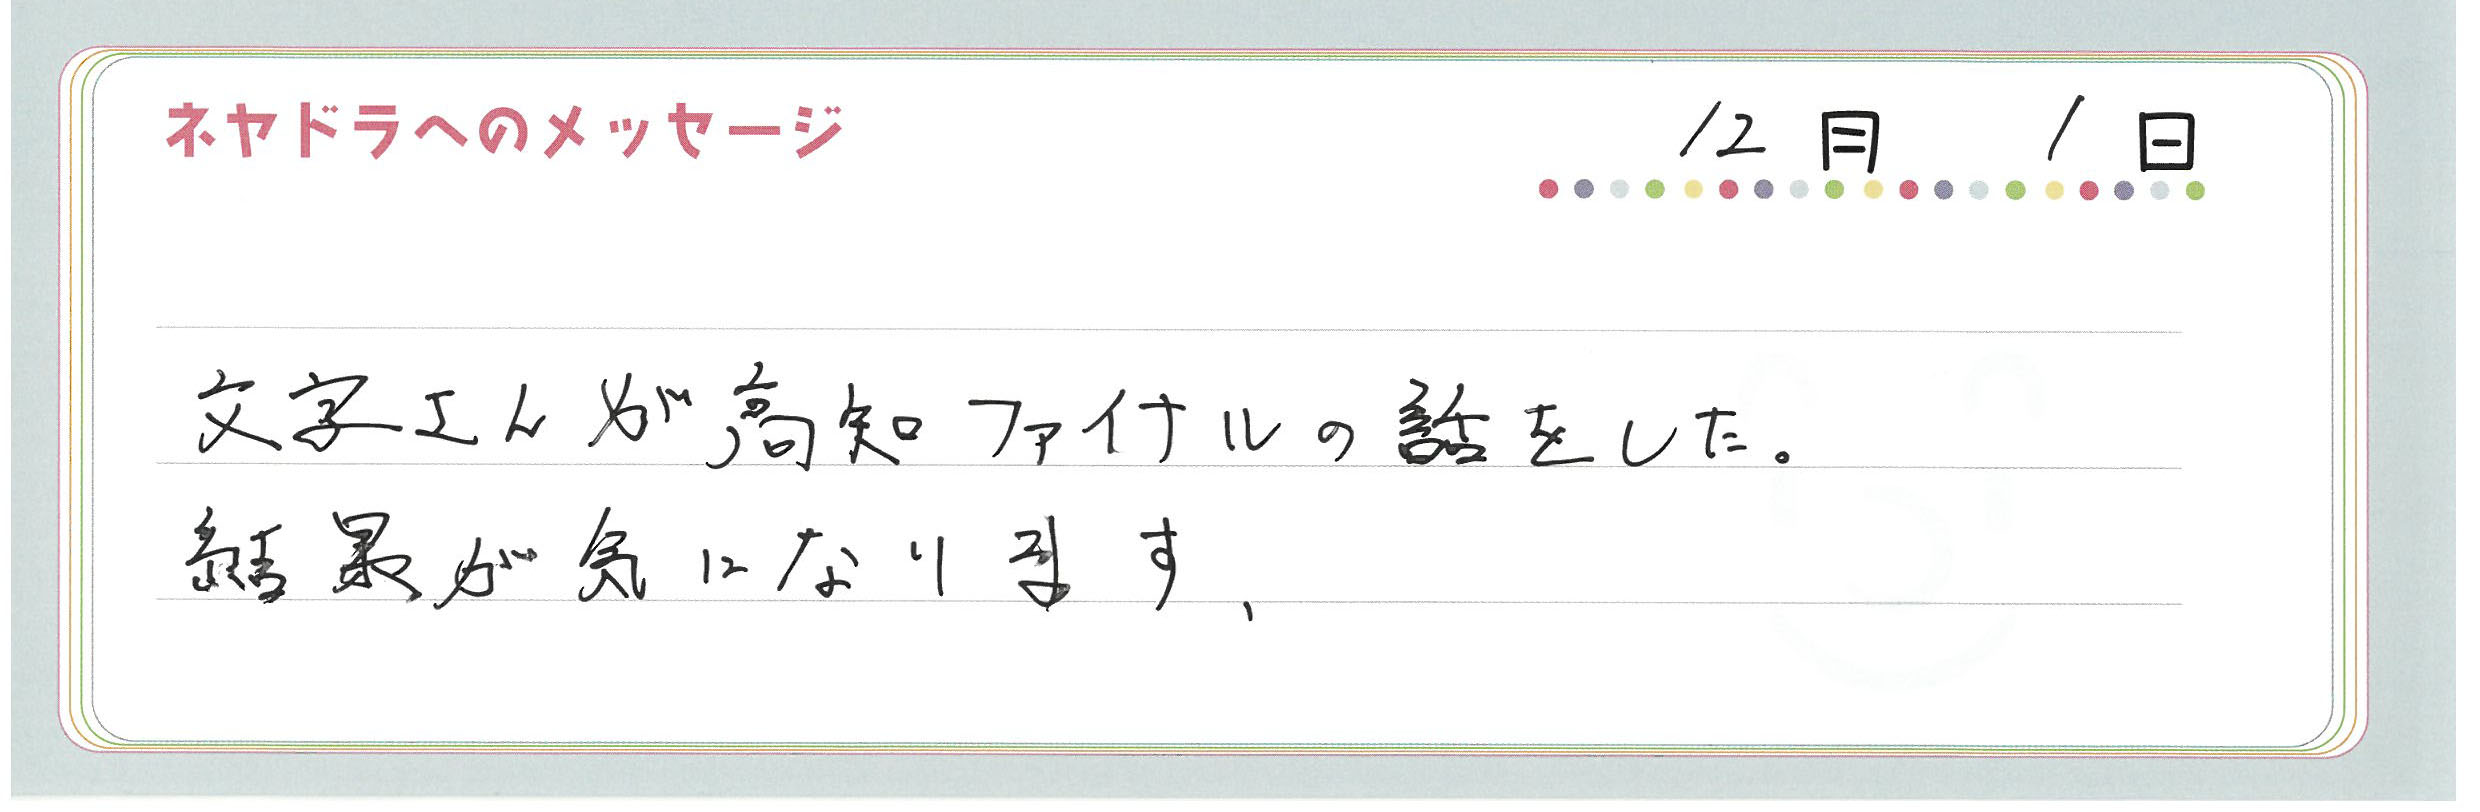 ネヤドラへのメッセージ
12月 1日
文字さんが高知ファイナルの話をした。
結果が気になります、